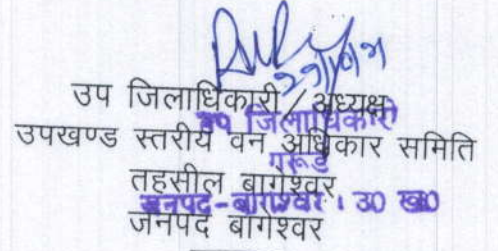 उप जिलाधिकारी / अध्यक्ष
उप जिलाधिकारी
उपखण्ड स्तरीय वन अधिकार समिति
गरूड
तहसील बागेश्वर
जनपद-बागेश्वर । उ0 ख0
जनपद बागेश्वर